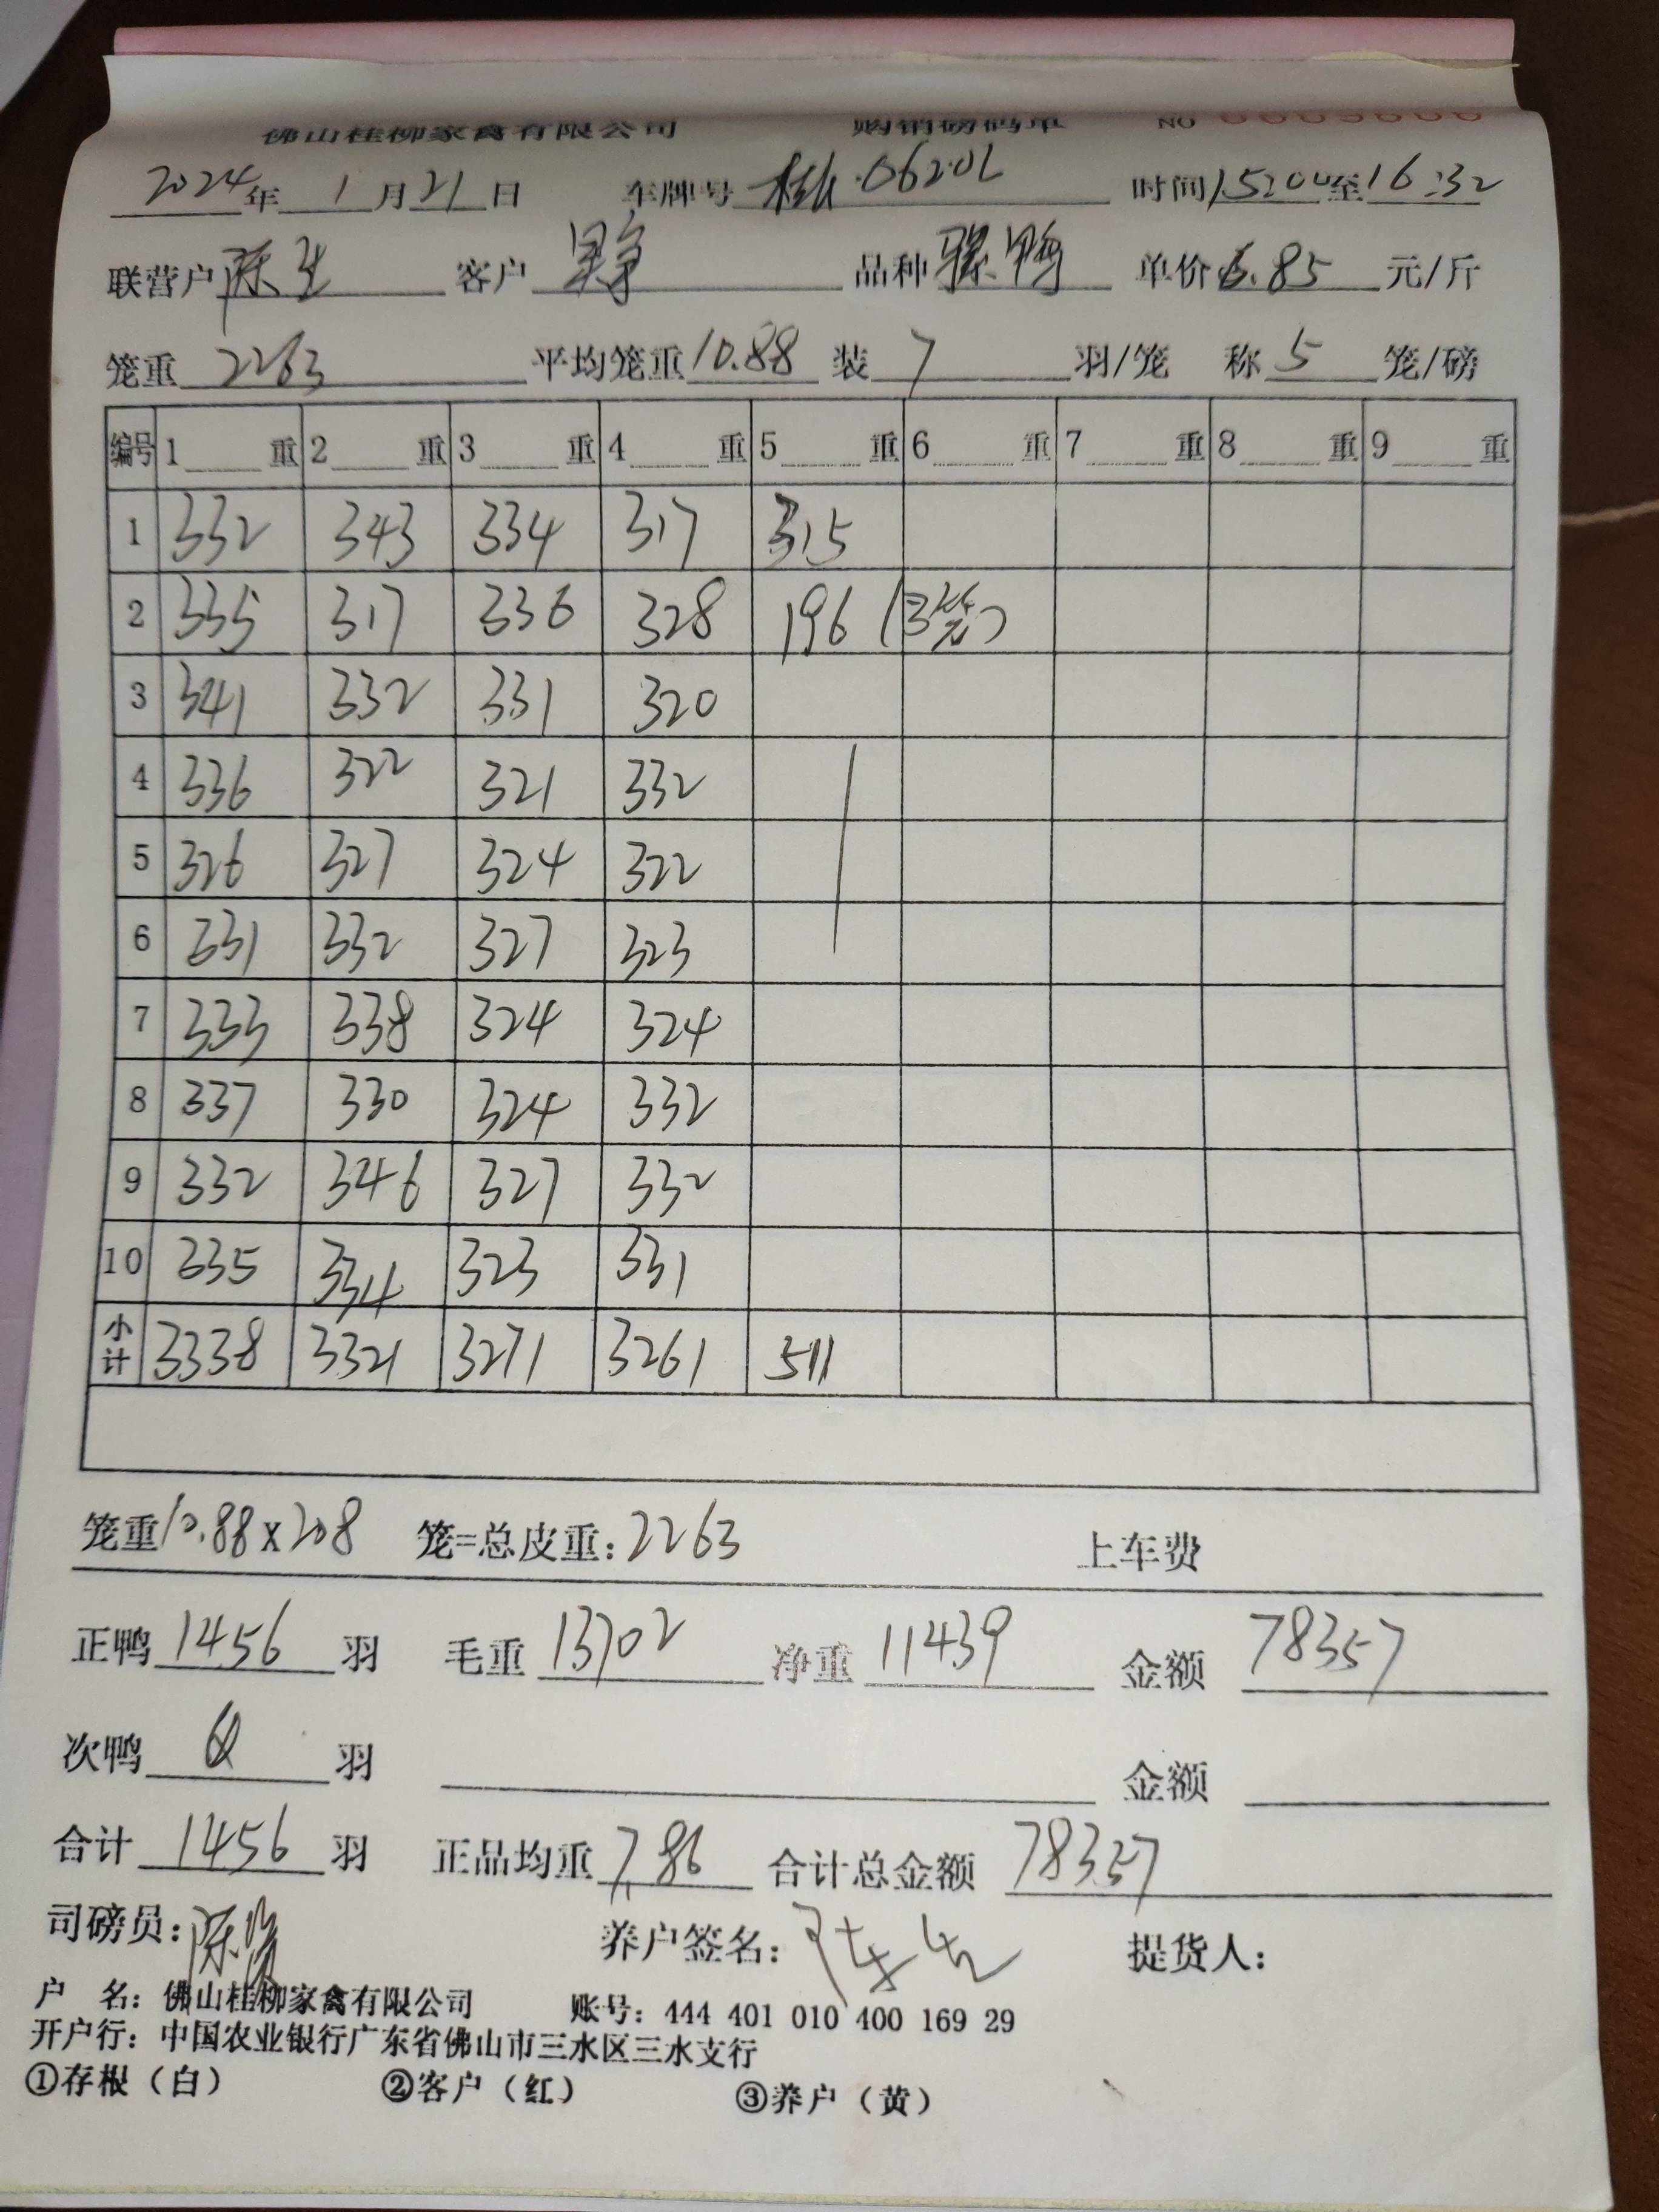 佛山桂柳家禽有限公司 购销磅码单 NO
2024年1月21日 车牌号 06201 时间15:00至16:32
联营户 陈生 客户 品种 骡鸭 单价6.85元/斤
笼重 2263 平均笼重10.88 装 7 羽/笼 称 5 笼/磅
编号 1 重 2 重 3 重 4 重 5 重 6 重 7 重 8 重 9 重
1 332 343 334 317 315
2 335 317 336 328 196 (3笼)
3 341 332 331 320
4 336 322 321 332
5 326 327 324 322
6 331 332 327 323
7 333 338 324 324
8 337 330 324 332
9 332 346 327 332
10 335 334 323 331
小计 3338 3321 3271 3261 511
笼重10.88x208 笼=总皮重:2263 上车费
正鸭 1456 羽 毛重 13702 净重 11439 金额 78357
次鸭 羽 金额
合计 1456 羽 正品均重 7.86 合计总金额 78357
司磅员: 养户签名: 陈生 提货人:
户 名: 佛山桂柳家禽有限公司 账号: 444 401 010 400 169 29
开户行: 中国农业银行广东省佛山市三水区三水支行
①存根(白) ②客户(红) ③养户(黄)